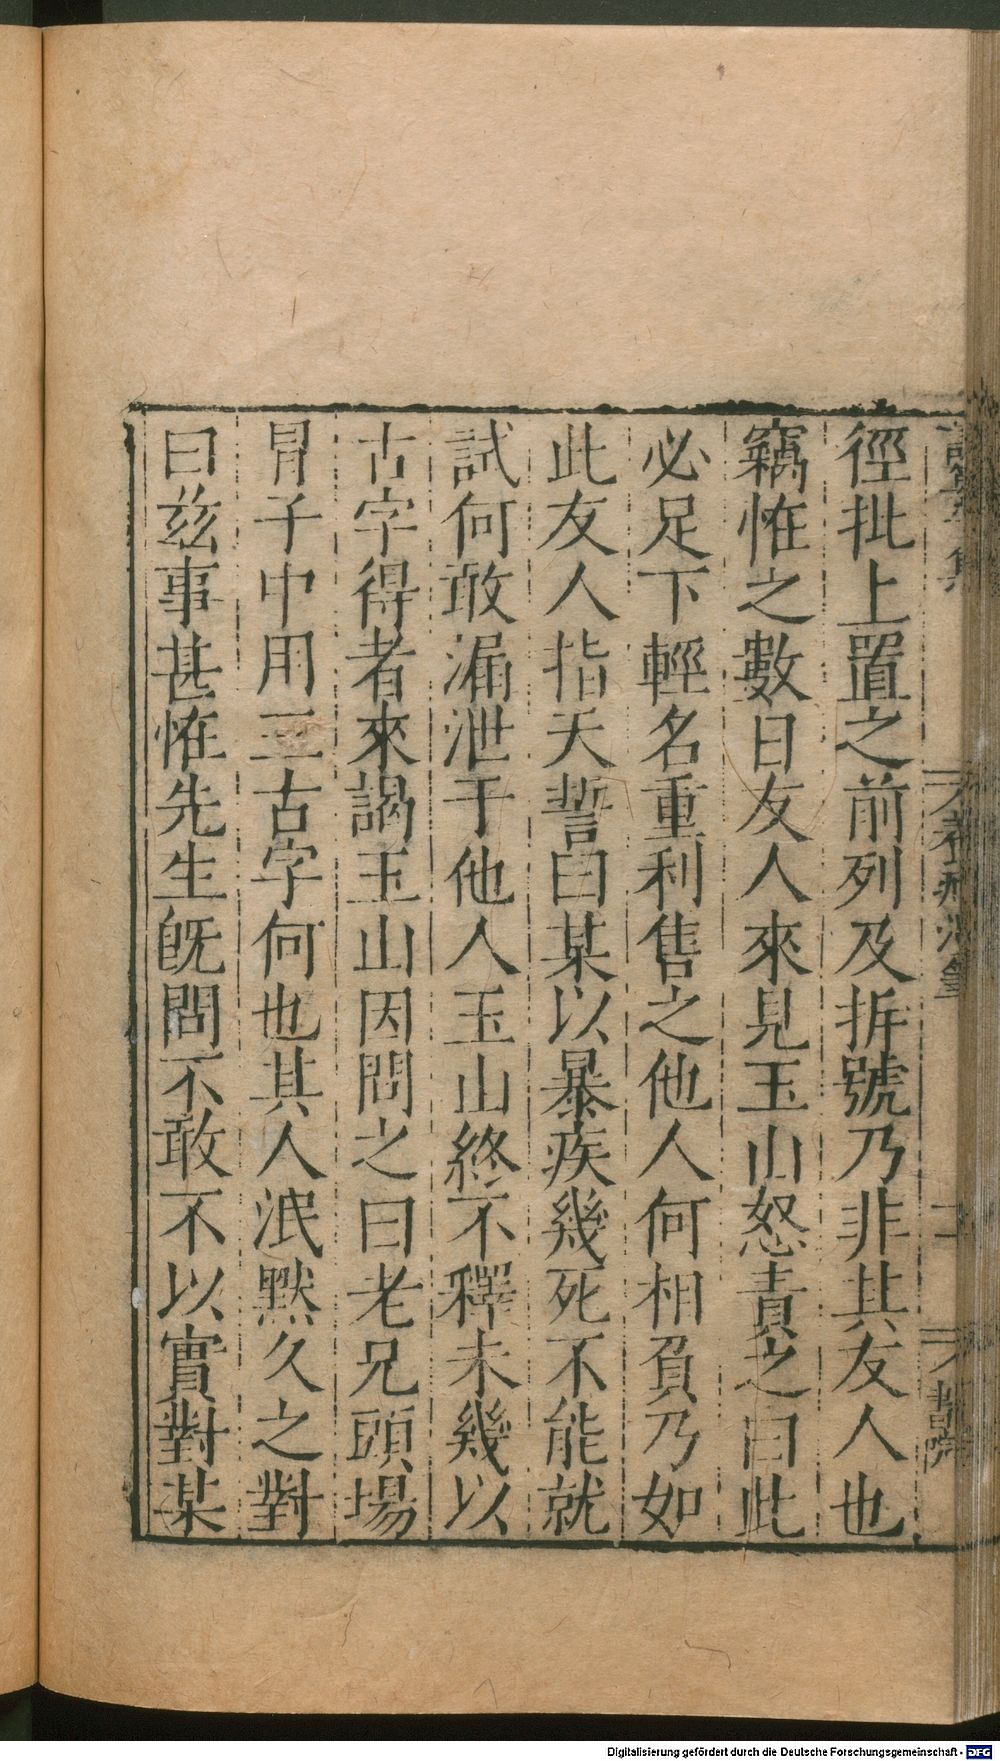 徑批上置之前列及拆號乃非其友人也
竊恠之數日友人來見玉山怒責之曰此
必足下輕名重利售之他人何相負乃如
此友人指天誓曰某以暴疾幾死不能就
試何敢漏泄于他人玉山終不釋未幾以
古字得者來謁玉山因問之曰老兄頭場
冐子中用三古字何也其人泯默久之對
曰兹事甚恠先生旣問不敢不以實對某
Digitalisierung gefördert durch die Deutsche Forschungsgemeinschaft - DFG